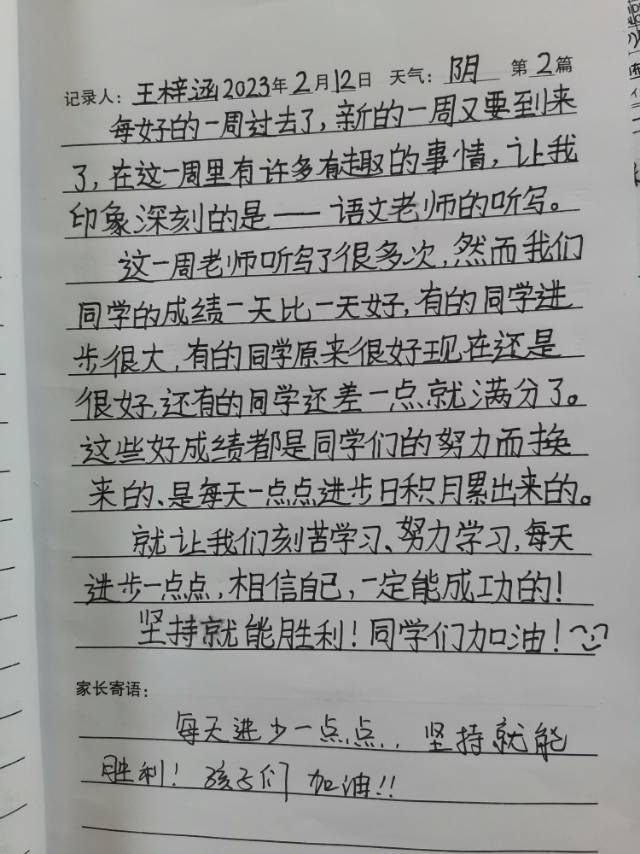 记录人：王梓涵 2023年2月12日 天气：阴 第2篇
每好的一周过去了，新的一周又要到来
了，在这一周里有许多有趣的事情，让我
印象深刻的是——语文老师的听写。
这一周老师听写了很多次，然而我们
同学的成绩一天比一天好，有的同学进
步很大，有的同学原来很好现在还是
很好，还有的同学还差一点就满分了。
这些好成绩都是同学们的努力而换
来的、是每天一点点进步日积月累出来的。
就让我们刻苦学习、努力学习，每天
进步一点点，相信自己，一定能成功的！
坚持就能胜利！同学们加油！
家长寄语：
每天进步一点点，坚持就能
胜利！孩子们加油!!